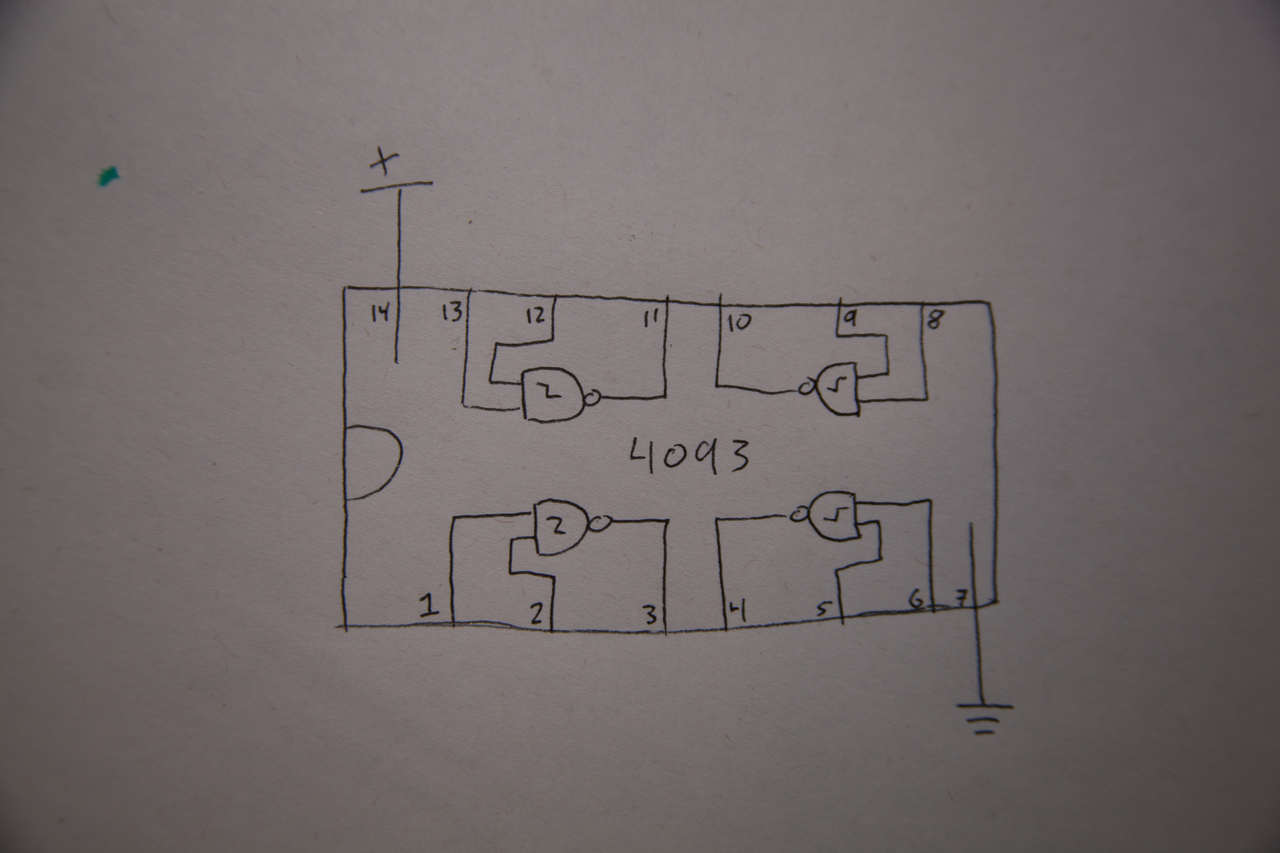 +
14 13 12 11 10 9 8
4093
1 2 3 4 5 6 7